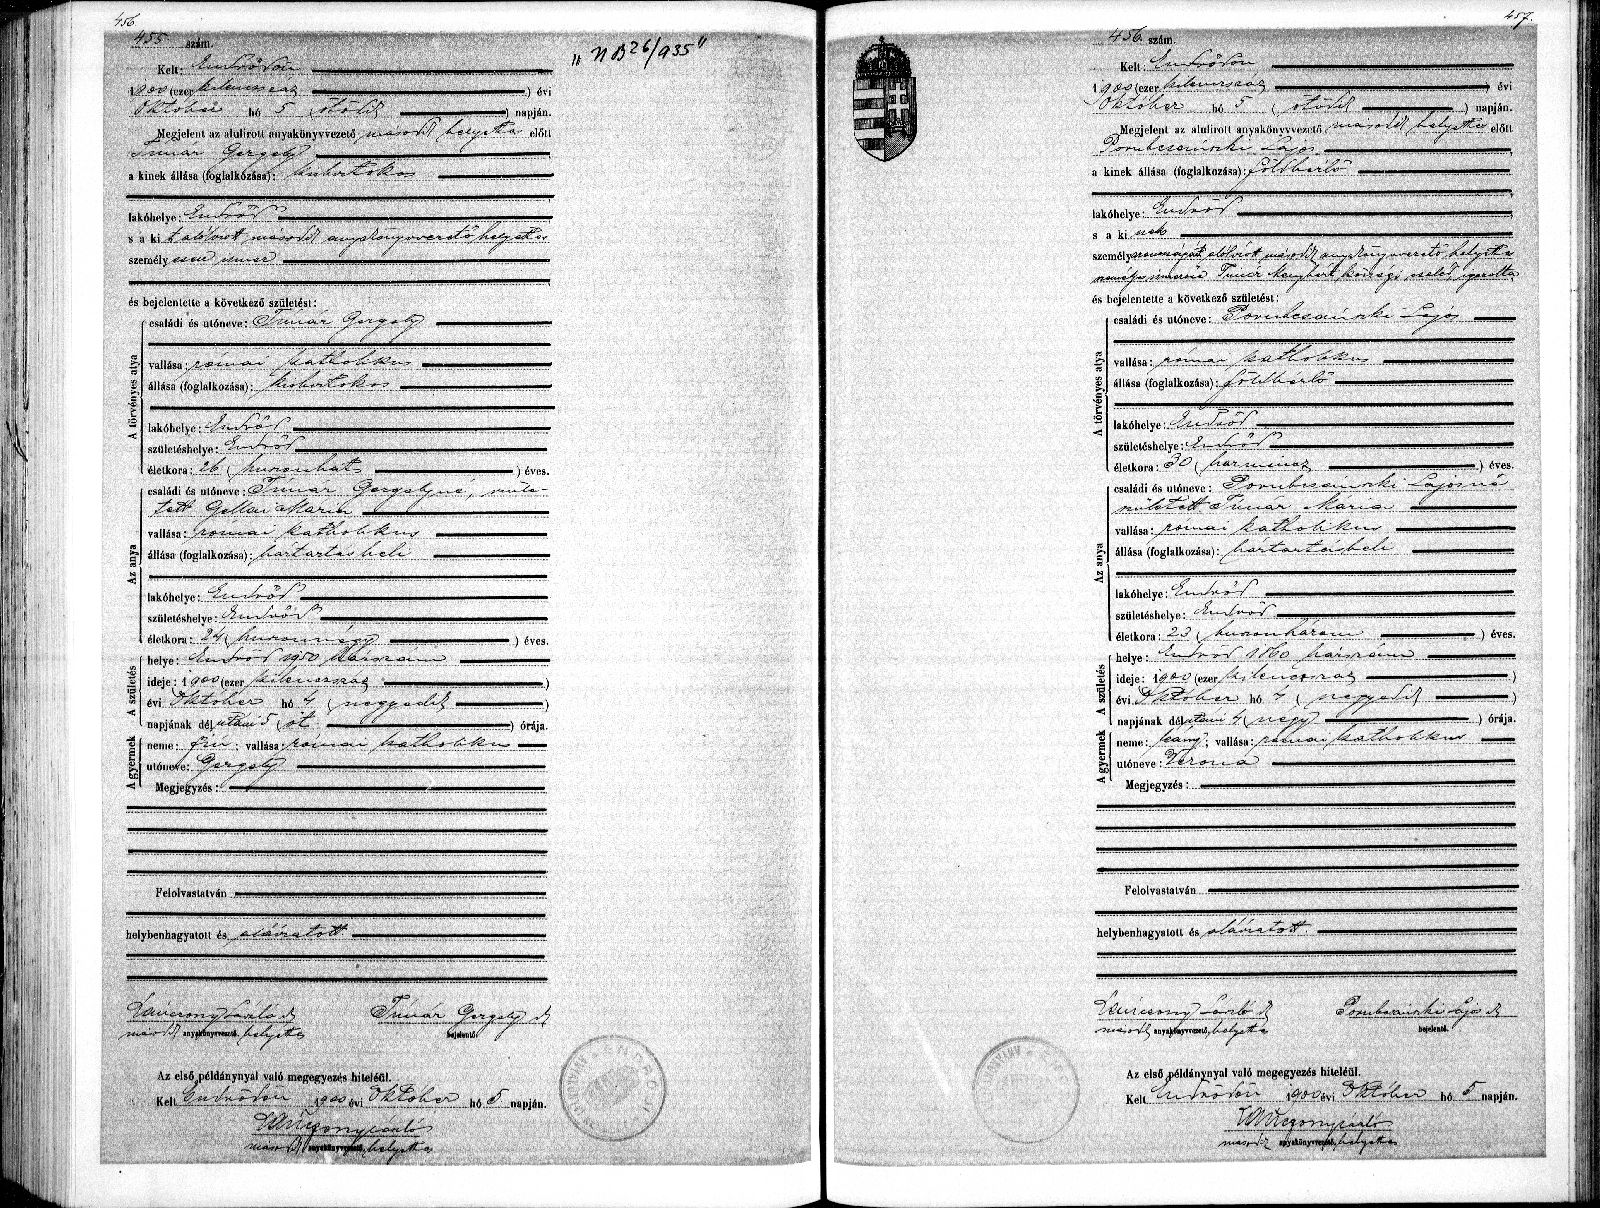 456
455 szám.
„NB 26/935"
Kelt: Endrődön
1900 (ezer kilencszáz ) évi
Október hó 5 (ötödik ) napján.
Megjelent az alulirott anyakönyvvezető második helyettes előtt
Timár Gergely
a kinek állása (foglalkozása): kisbirtokos
lakóhelye: Endrőd
s a ki t alólirott második anyakönyvvezető helyettes
személyesen ismer
és bejelentette a következő születést:
A törvényes atya
családi és utóneve: Timár Gergely
vallása: római katholikus
állása (foglalkozása): kisbirtokos
lakóhelye: Endrőd
születéshelye: Endrőd
életkora: 26 (huszonhat ) éves.
Az anya
családi és utóneve: Timár Gergelyné, szüle-
tett Gellai Mária
vallása: római katholikus
állása (foglalkozása): háztartásbeli
lakóhelye: Endrőd
születéshelye: Endrőd
életkora: 24 (huszonnégy ) éves.
A születés
helye: Endrőd 1950 házszám
ideje: 1900 (ezer kilencszáz )
évi Október hó 4 (negyedik )
napjának délutáni 5 (öt ) órája.
A gyermek
neme: fiú; vallása: római katholikus
utóneve: Gergely
Megjegyzés:
Felolvastatván
helybenhagyatott és aláiratott
László sk Timár Gergely sk
második anyakönyvvezető, helyettes bejelentő.
Az első példánynyal való megegyezés hiteléül.
Kelt Endrődön 1900 évi Október hó 5 napján.
László
második anyakönyvvezető, helyettes
457.
456 szám.
Kelt: Endrődön
1900 (ezer kilencszáz ) évi
Október hó 5 (ötödik ) napján.
Megjelent az alulirott anyakönyvvezető második helyettes előtt
Porubcsánszki Lajos
a kinek állása (foglalkozása): földbérlő
lakóhelye: Endrőd
s a ki nek
személyazonosságát alólirott második anyakönyvvezető helyettes
Timár községi igazolta
és bejelentette a következő születést:
A törvényes atya
családi és utóneve: Porubcsánszki Lajos
vallása: római katholikus
állása (foglalkozása): földbérlő
lakóhelye: Endrőd
születéshelye: Endrőd
életkora: 30 (harmincz ) éves.
Az anya
családi és utóneve: Porubcsánszki Lajosné
született Timár Mária
vallása: római katholikus
állása (foglalkozása): háztartásbeli
lakóhelye: Endrőd
születéshelye: Endrőd
életkora: 23 (huszonhárom ) éves.
A születés
helye: Endrőd 1860 házszám
ideje: 1900 (ezer kilencszáz )
évi Október hó 4 (negyedik )
napjának délutáni 4 (négy ) órája.
A gyermek
neme: leány; vallása: római katholikus
utóneve: Verona
Megjegyzés:
Felolvastatván
helybenhagyatott és aláiratott.
László sk Porubcsánszki Lajos sk
második anyakönyvvezető, helyettes bejelentő.
Az első példánynyal való megegyezés hiteléül.
Kelt Endrődön 1900 évi Október hó 5 napján.
László
második anyakönyvvezető, helyettes